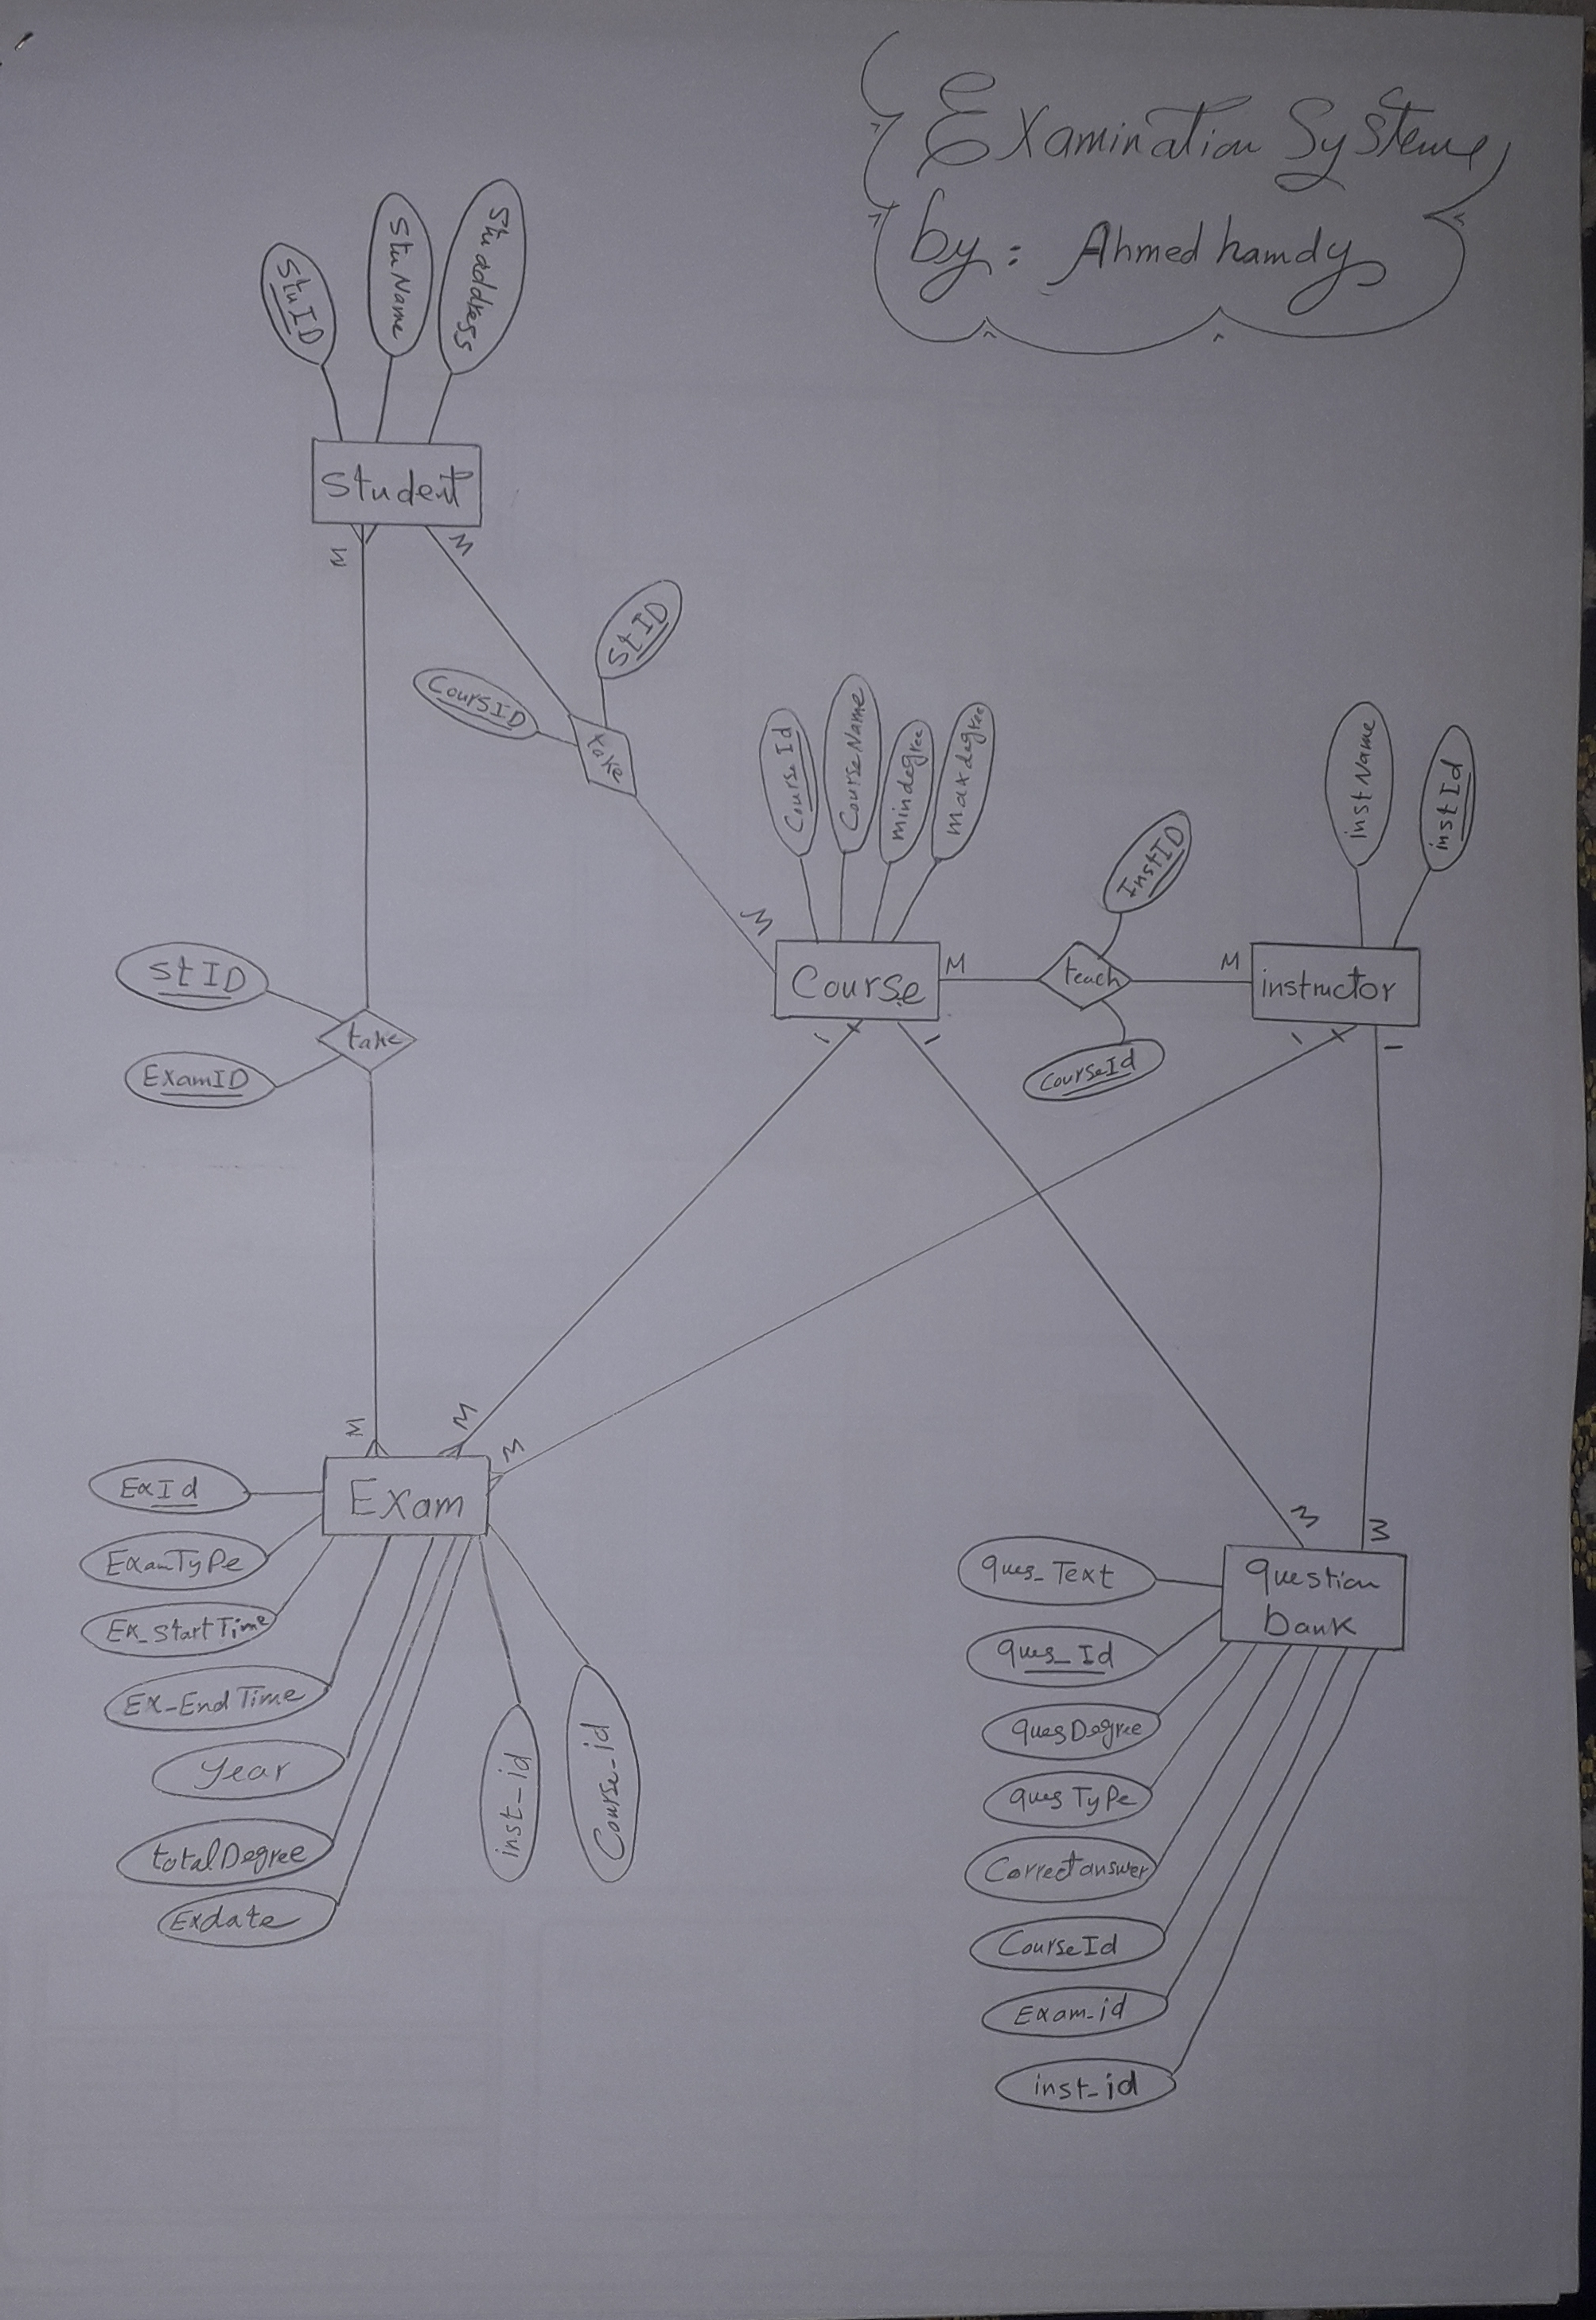 Examination System
by: Ahmed hamdy
StuID
StuName
Stu address
Student
M
M
StID
CoursID
take
CourseId
CourseName
mindegree
maxdegree
instName
instId
InstID
M
Course
M
teach
M
instructor
CourseId
1
1
1
1
StID
take
ExamID
M
M
M
M
M
ExId
Exam
ExamType
Ex_StartTime
Ex-EndTime
year
totalDegree
Exdate
inst-id
Course-id
Question
bank
ques_Text
ques_Id
quesDegree
quesType
Correctanswer
CourseId
Exam-id
inst-id